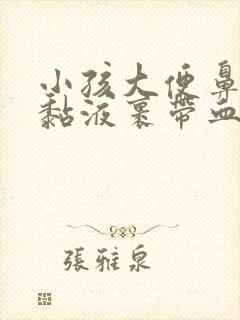 小孩大便鼻
黏液裹带血
張雅泉